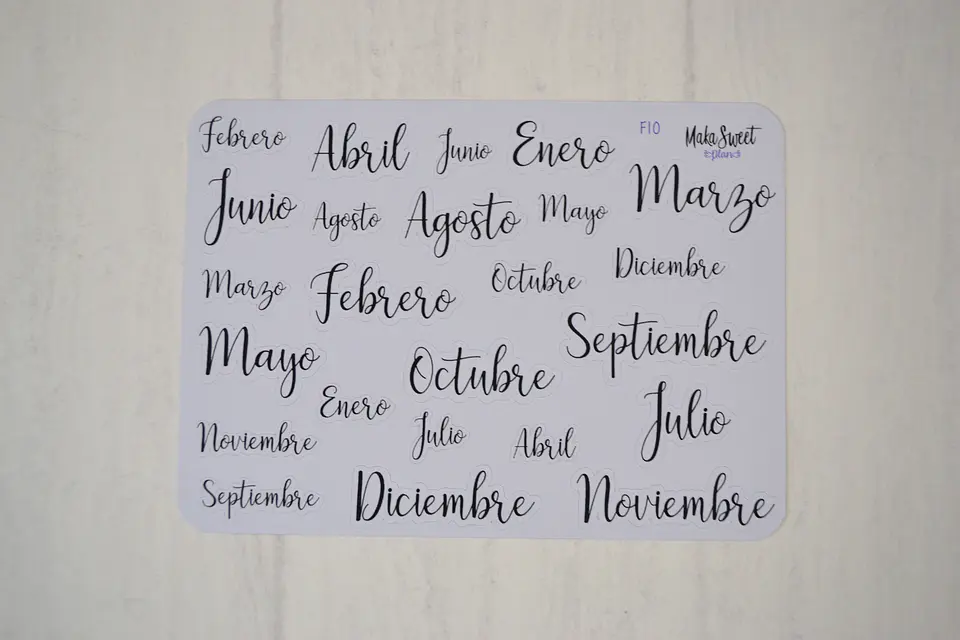 Febrero Abril Junio Enero F10 Maka Sweet
Plan
Junio Agosto Agosto Mayo Marzo
Marzo Febrero Octubre Diciembre
Mayo Octubre Septiembre
Enero
Noviembre Julio Abril Julio
Septiembre Diciembre Noviembre